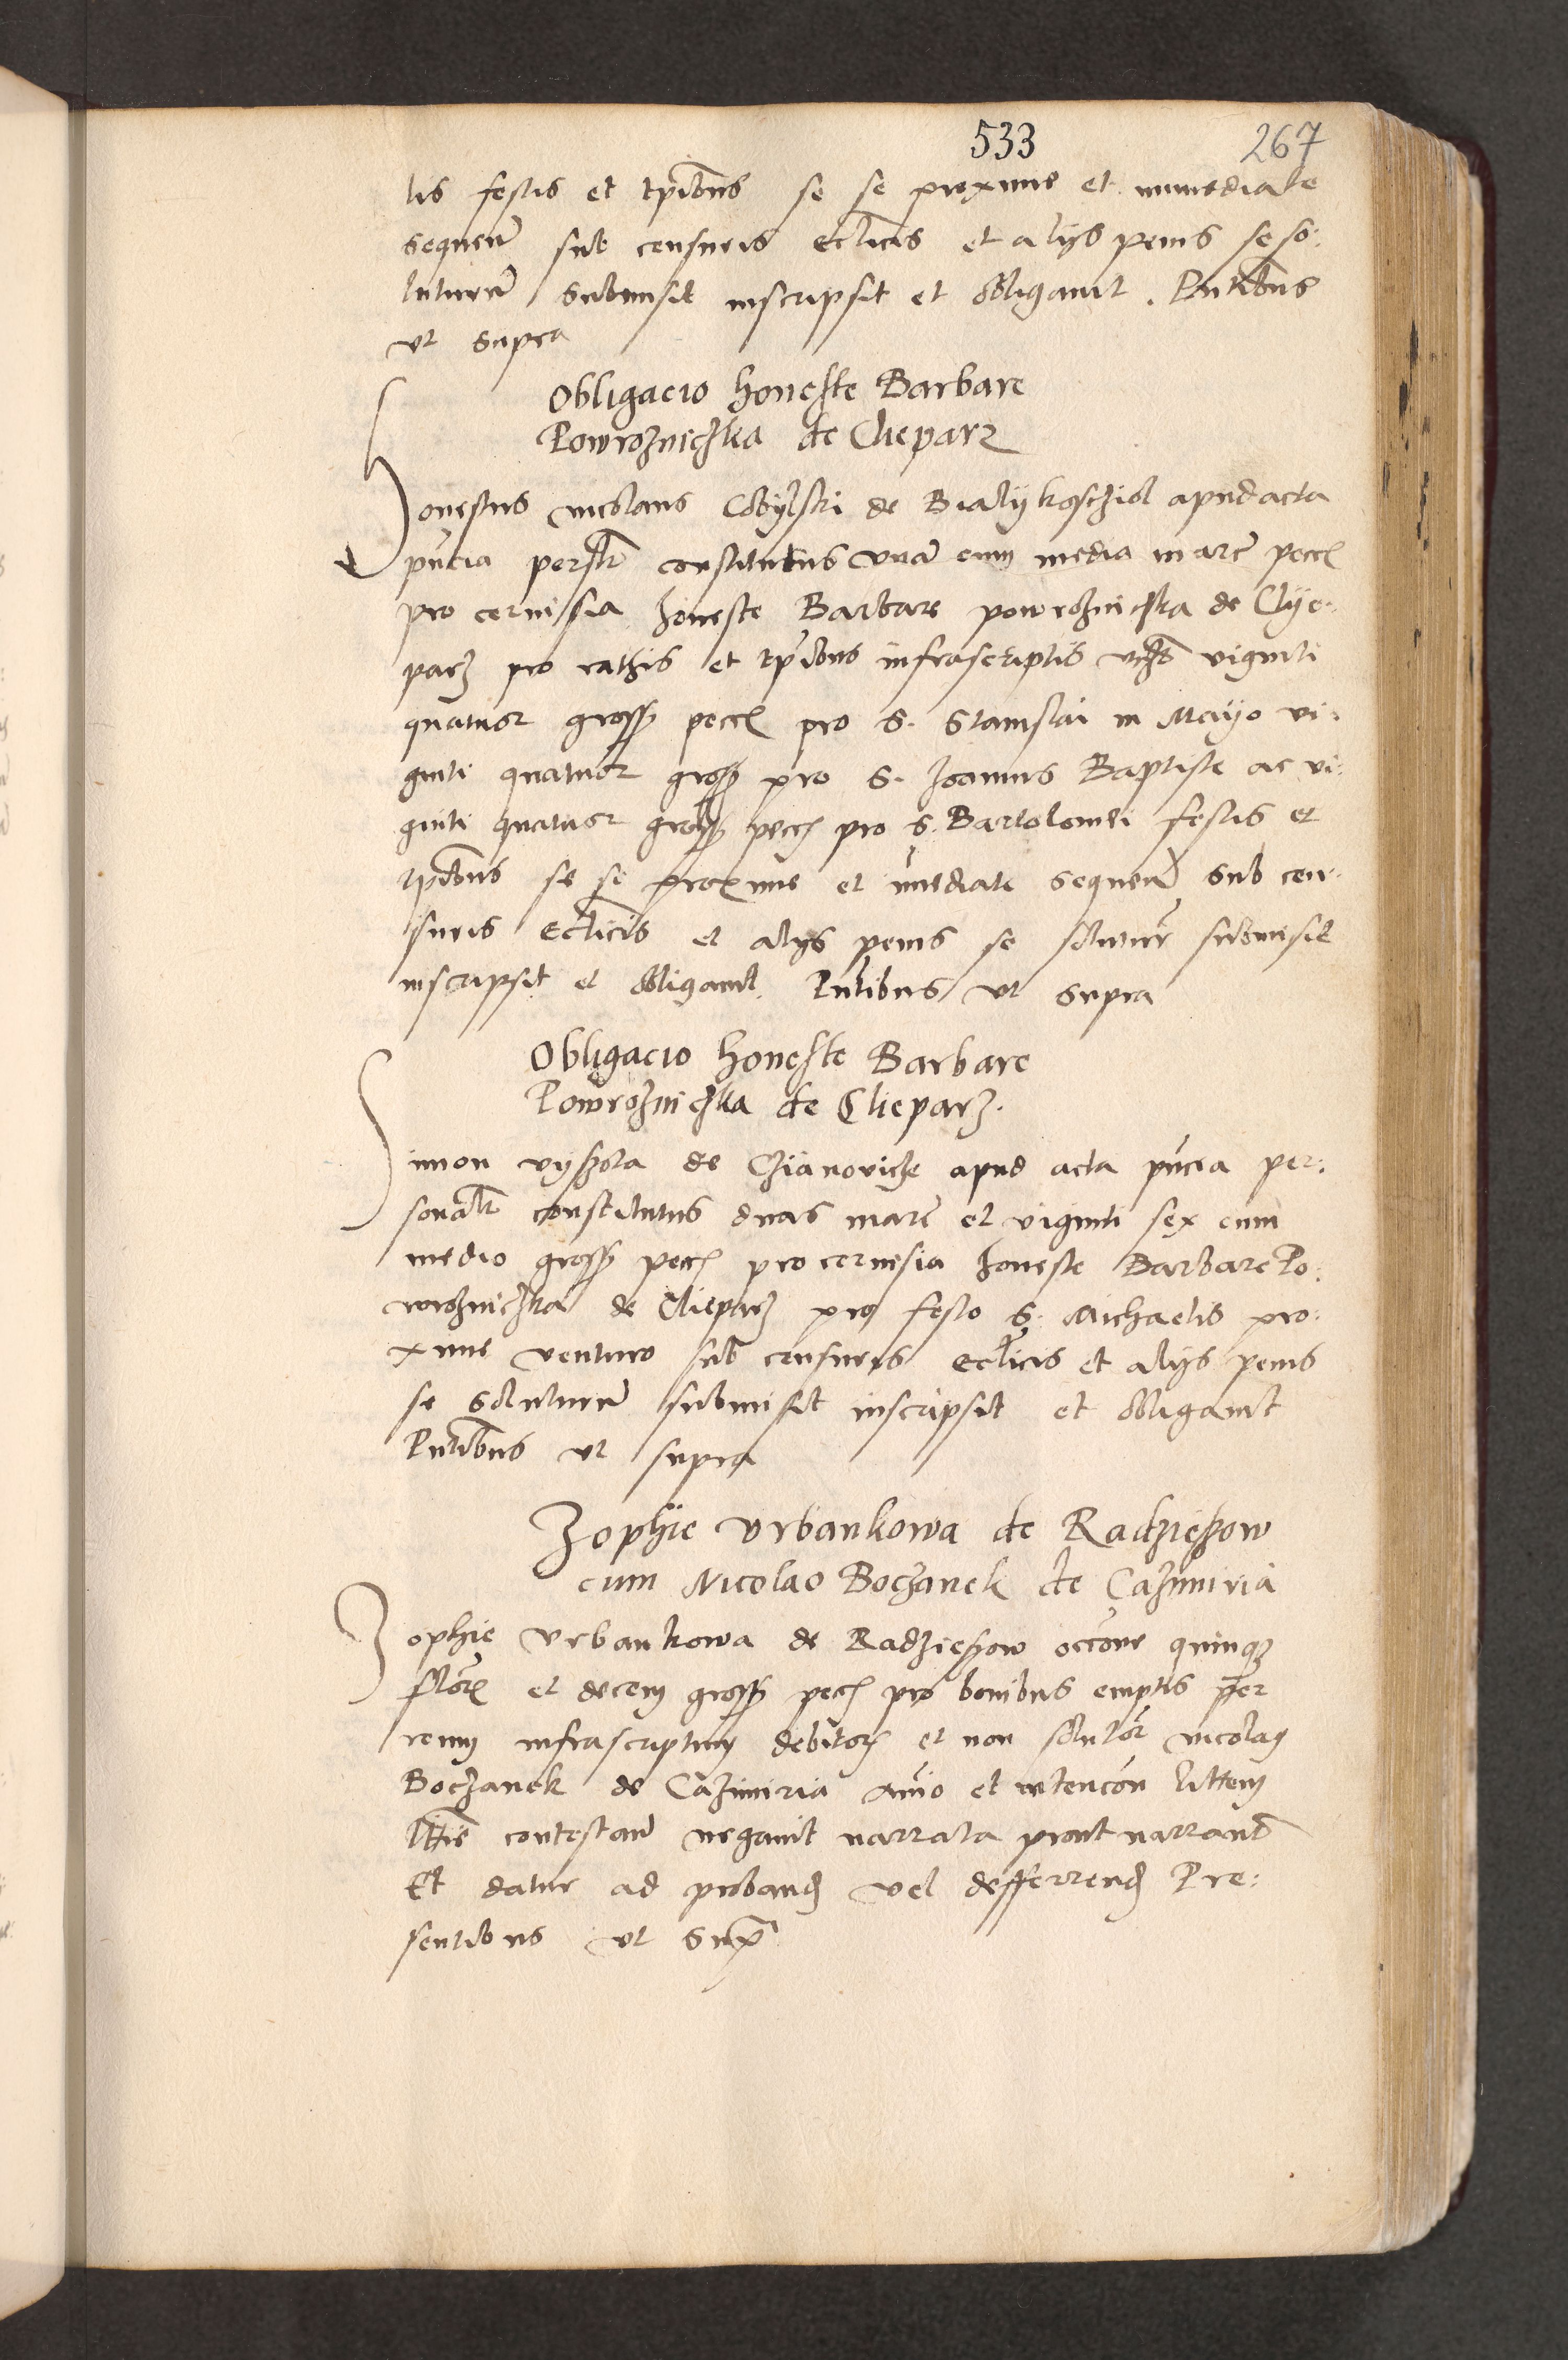 533 267
lis festis et tpibus se se proxime et immediate
sequen sub censuris ecclicis et alijs penis se so:
luturum submisit inscripsit et obligauit. Pntibus
vt supra
Obligacio honeste Barbare
Powrozniczka de Cleparz
Honestus Nicolaus Cobylski de Bialykoschiol apud acta
pntia persolr constitutus vnam cum media marc pecc
pro ceruisia honeste Barbare powrozniczka de Clye-
parz pro rathis et tpibus infrascriptis viginti
quatuor gross pecc pro S. Stanislai in Mayo vi:
ginti quatuor gross pro S. Joannis Baptiste ac vi:
ginti quatuor gross pecc pro S. Bartolomei festis et
tpibus se se proxime et imediate sequen sub cen:
suris ecclicis et alys penis se solutur submisit
inscripsit et obligauit. Pntibus vt supra
Obligacio honeste Barbare
Powrozniczka de Clieparz.
Simon vyssola de Czianovicze apud acta pntia per:
sonalr constitutus duas marc et viginti sex cum
medio gross pecc pro ceruisia honeste Barbare Po:
wrozniczka de Clieparz pro festo S. Michaelis pro:
xime venturo sub censuris ecclicis et alijs penis
se soluturum submisit inscripsit et obligauit
Pntibus vt supra
Zophie Vrbankowa de Radzieszow
cum Nicolao Boczanek de Cazimiria
Zophie Vrbankowa de Radzieszow occone quinqz
flor et decem gross pecc pro bouibus emptis per
reum infrascriptum debitor et non solutor Nicolay
Boczanek de Cazimiria animo et intencon littem
lttis contestan negauit narrata prout narrant
Et datur ad proband vel defferrend Pre:
sentibus vt supra